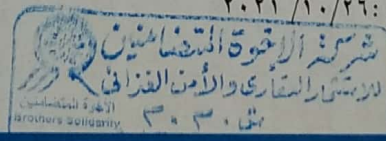 ٢٠٢١/١٠/٢٦:
شركة الاخوة المتضامنين
للاستثمار العقاري والأمن الغذائي
ش.م.م
الاخوة المتضامنين
Brothers Solidarity